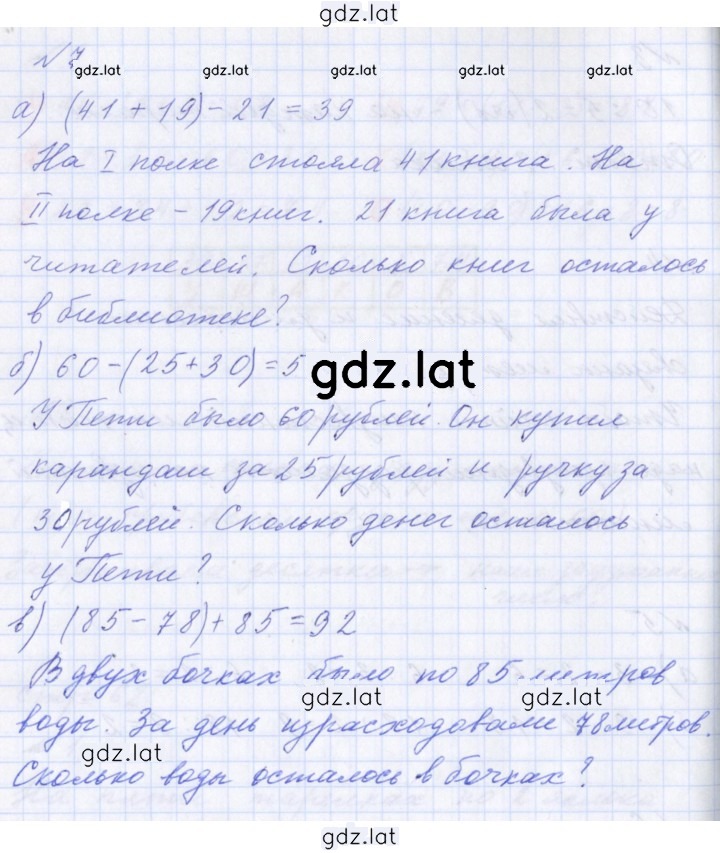 gdz.lat
№7
gdz.lat gdz.lat gdz.lat gdz.lat gdz.lat
а) (41 + 19) - 21 = 39
На I полке стояла 41 книга. На
II полке - 19 книг. 21 книга была у
читателей. Сколько книг осталось
в библиотеке?
б) 60 - (25 + 30) = 5
gdz.lat
У Пети было 60 рублей. Он купил
карандаш за 25 рублей и ручку за
30 рублей. Сколько денег осталось
у Пети?
в) (85 - 78) + 85 = 92
В двух бочках было по 85 литров
gdz.lat gdz.lat
воды. За день израсходовали 78 литров.
gdz.lat
Сколько воды осталось в бочках?
gdz.lat